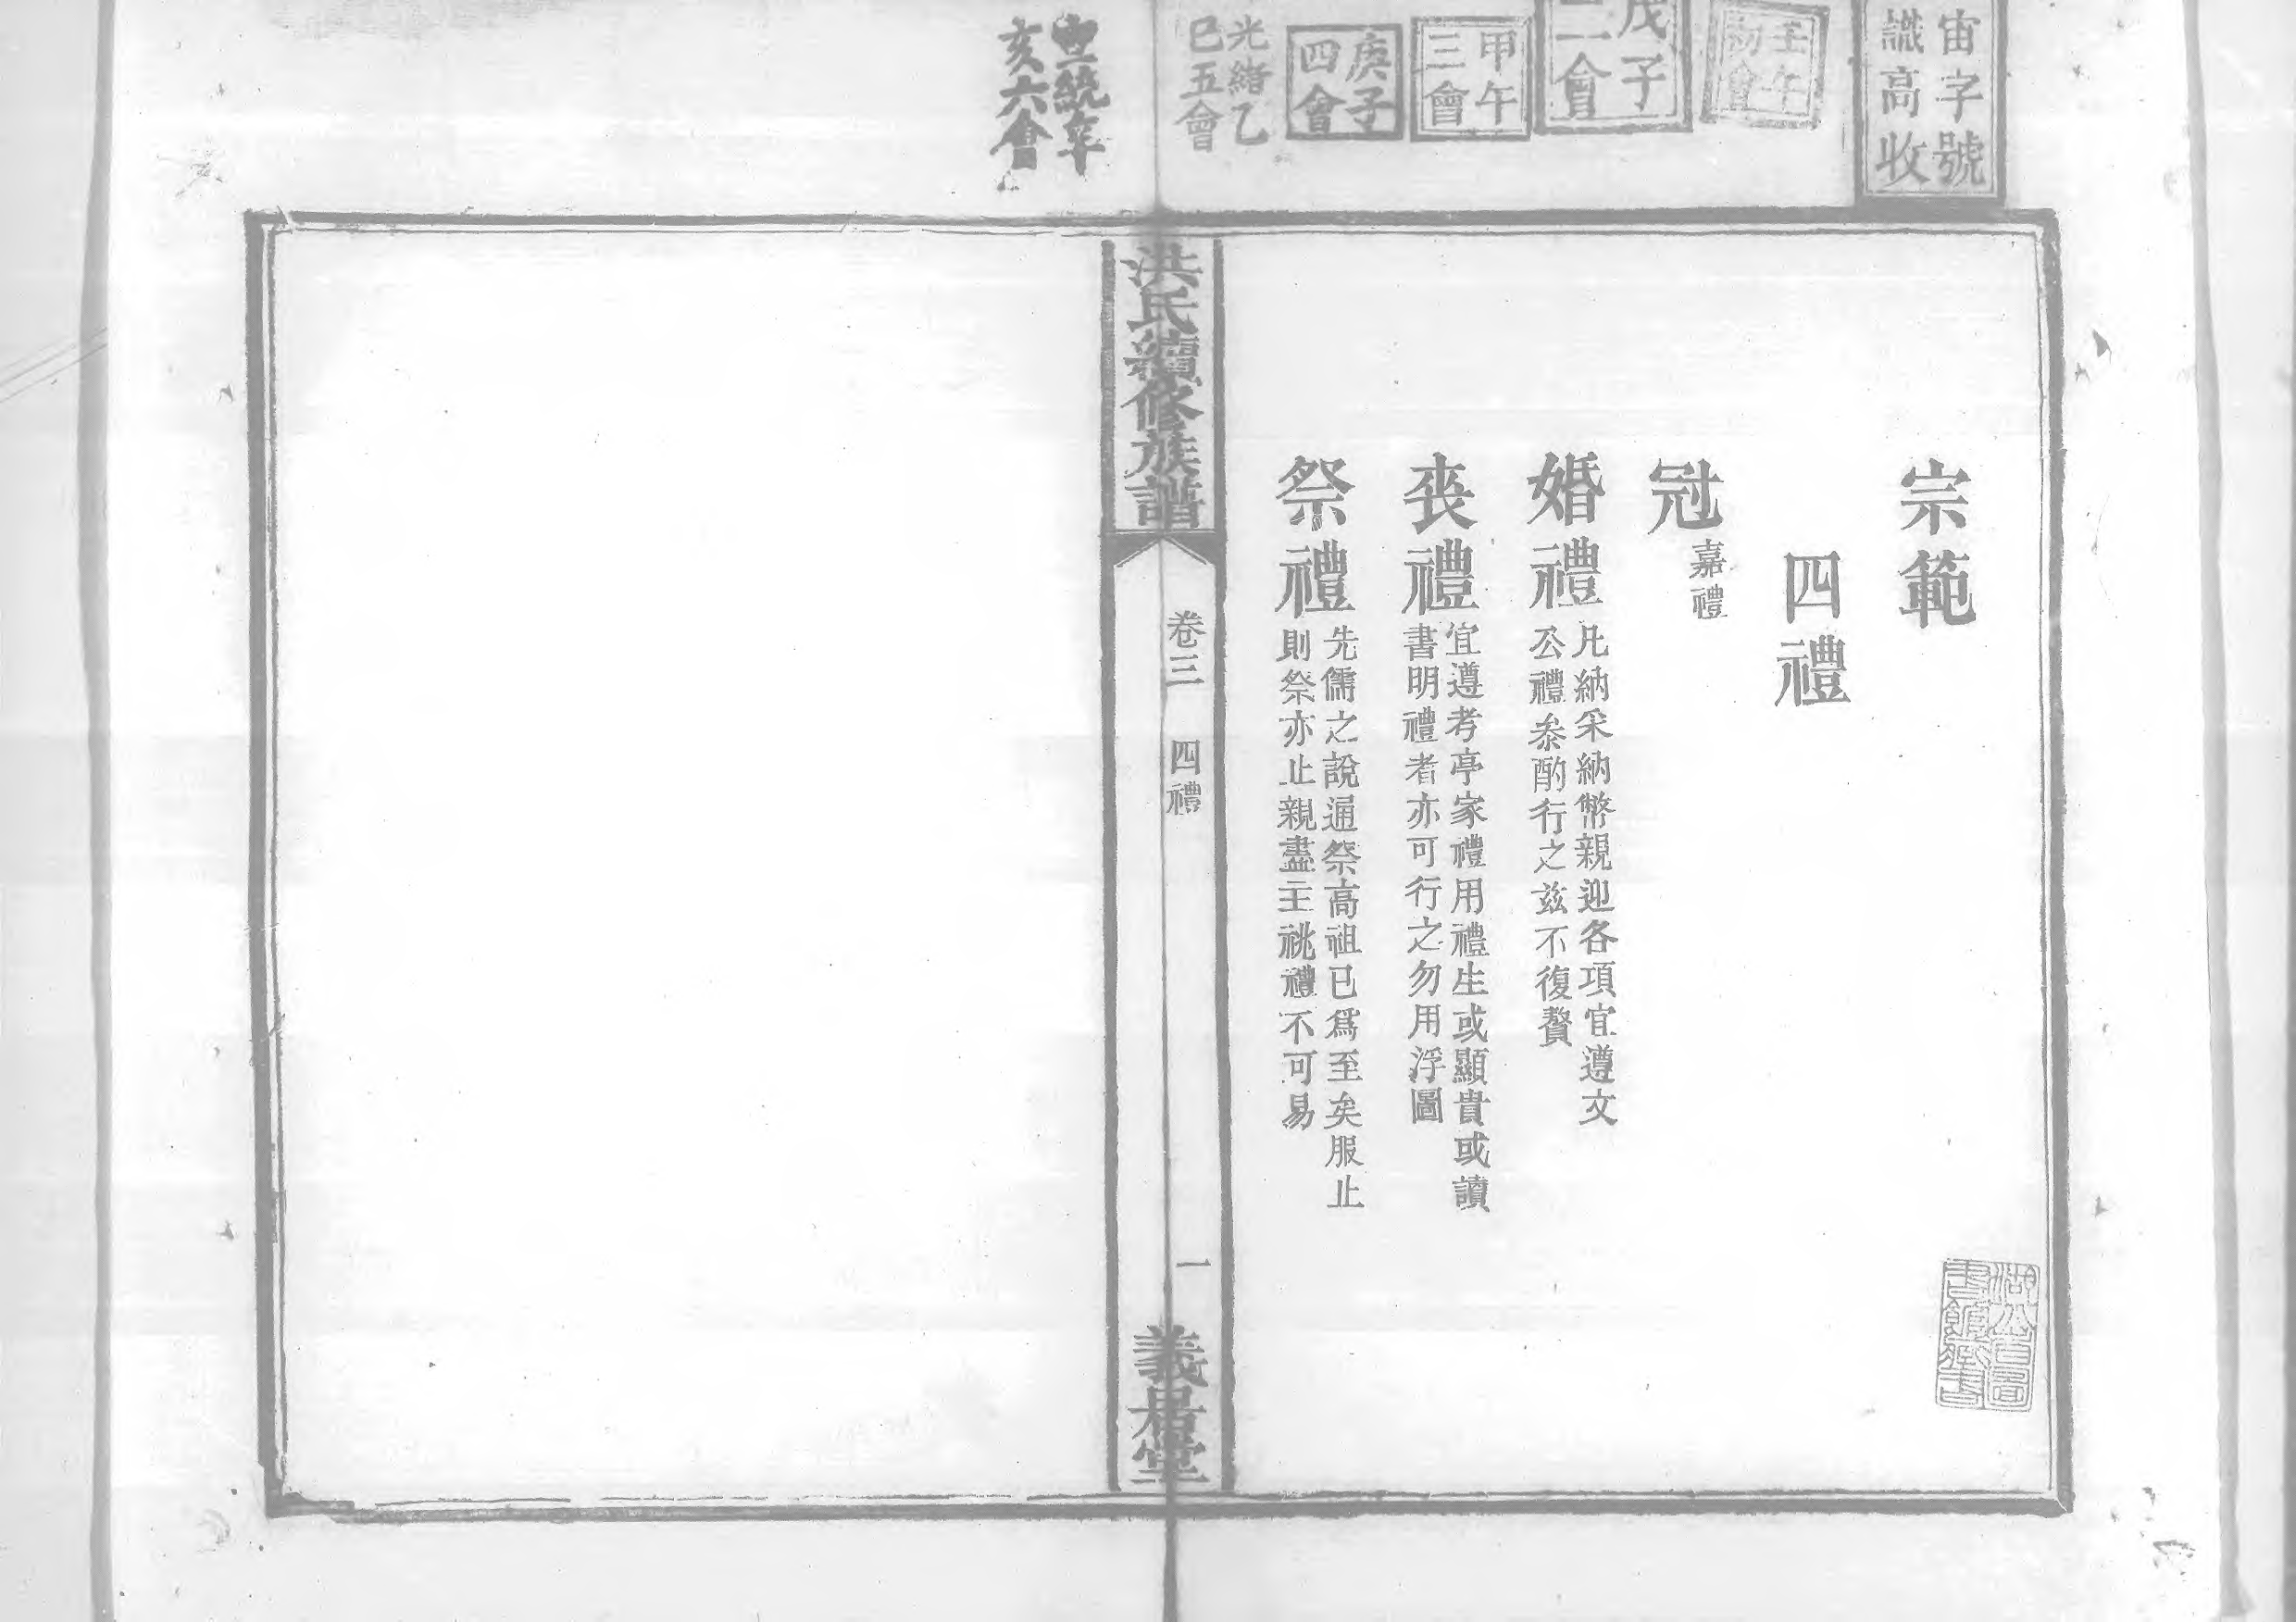 宙字號
識高收
壬午
初會
戊子
二會
甲午
三會
庚子
四會
光緒乙
巳五會
宣統辛
亥六會
宗範
四禮
冠
嘉禮
婚禮
凡納采納幣親迎各項宜遵文
公禮叅酌行之兹不復贅
喪禮
宜遵考亭家禮用禮生或顯貴或讀
書明禮者亦可行之勿用浮圖
祭禮
先儒之說通祭高祖已爲至矣服止
則祭亦止親盡主祧禮不可易
洪氏續修族譜
卷三 四禮
一
義居堂